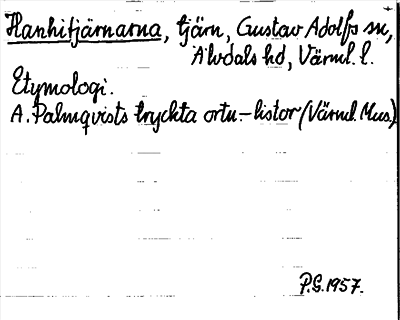 Hanhitjärnarna, tjärn, Gustav Adolfs sn,
Älvdals hd, Värml. l.
Etymologi.
A. Palmqvists tryckta ortn.-listor (Värml. Mus.)
P.G. 1957.